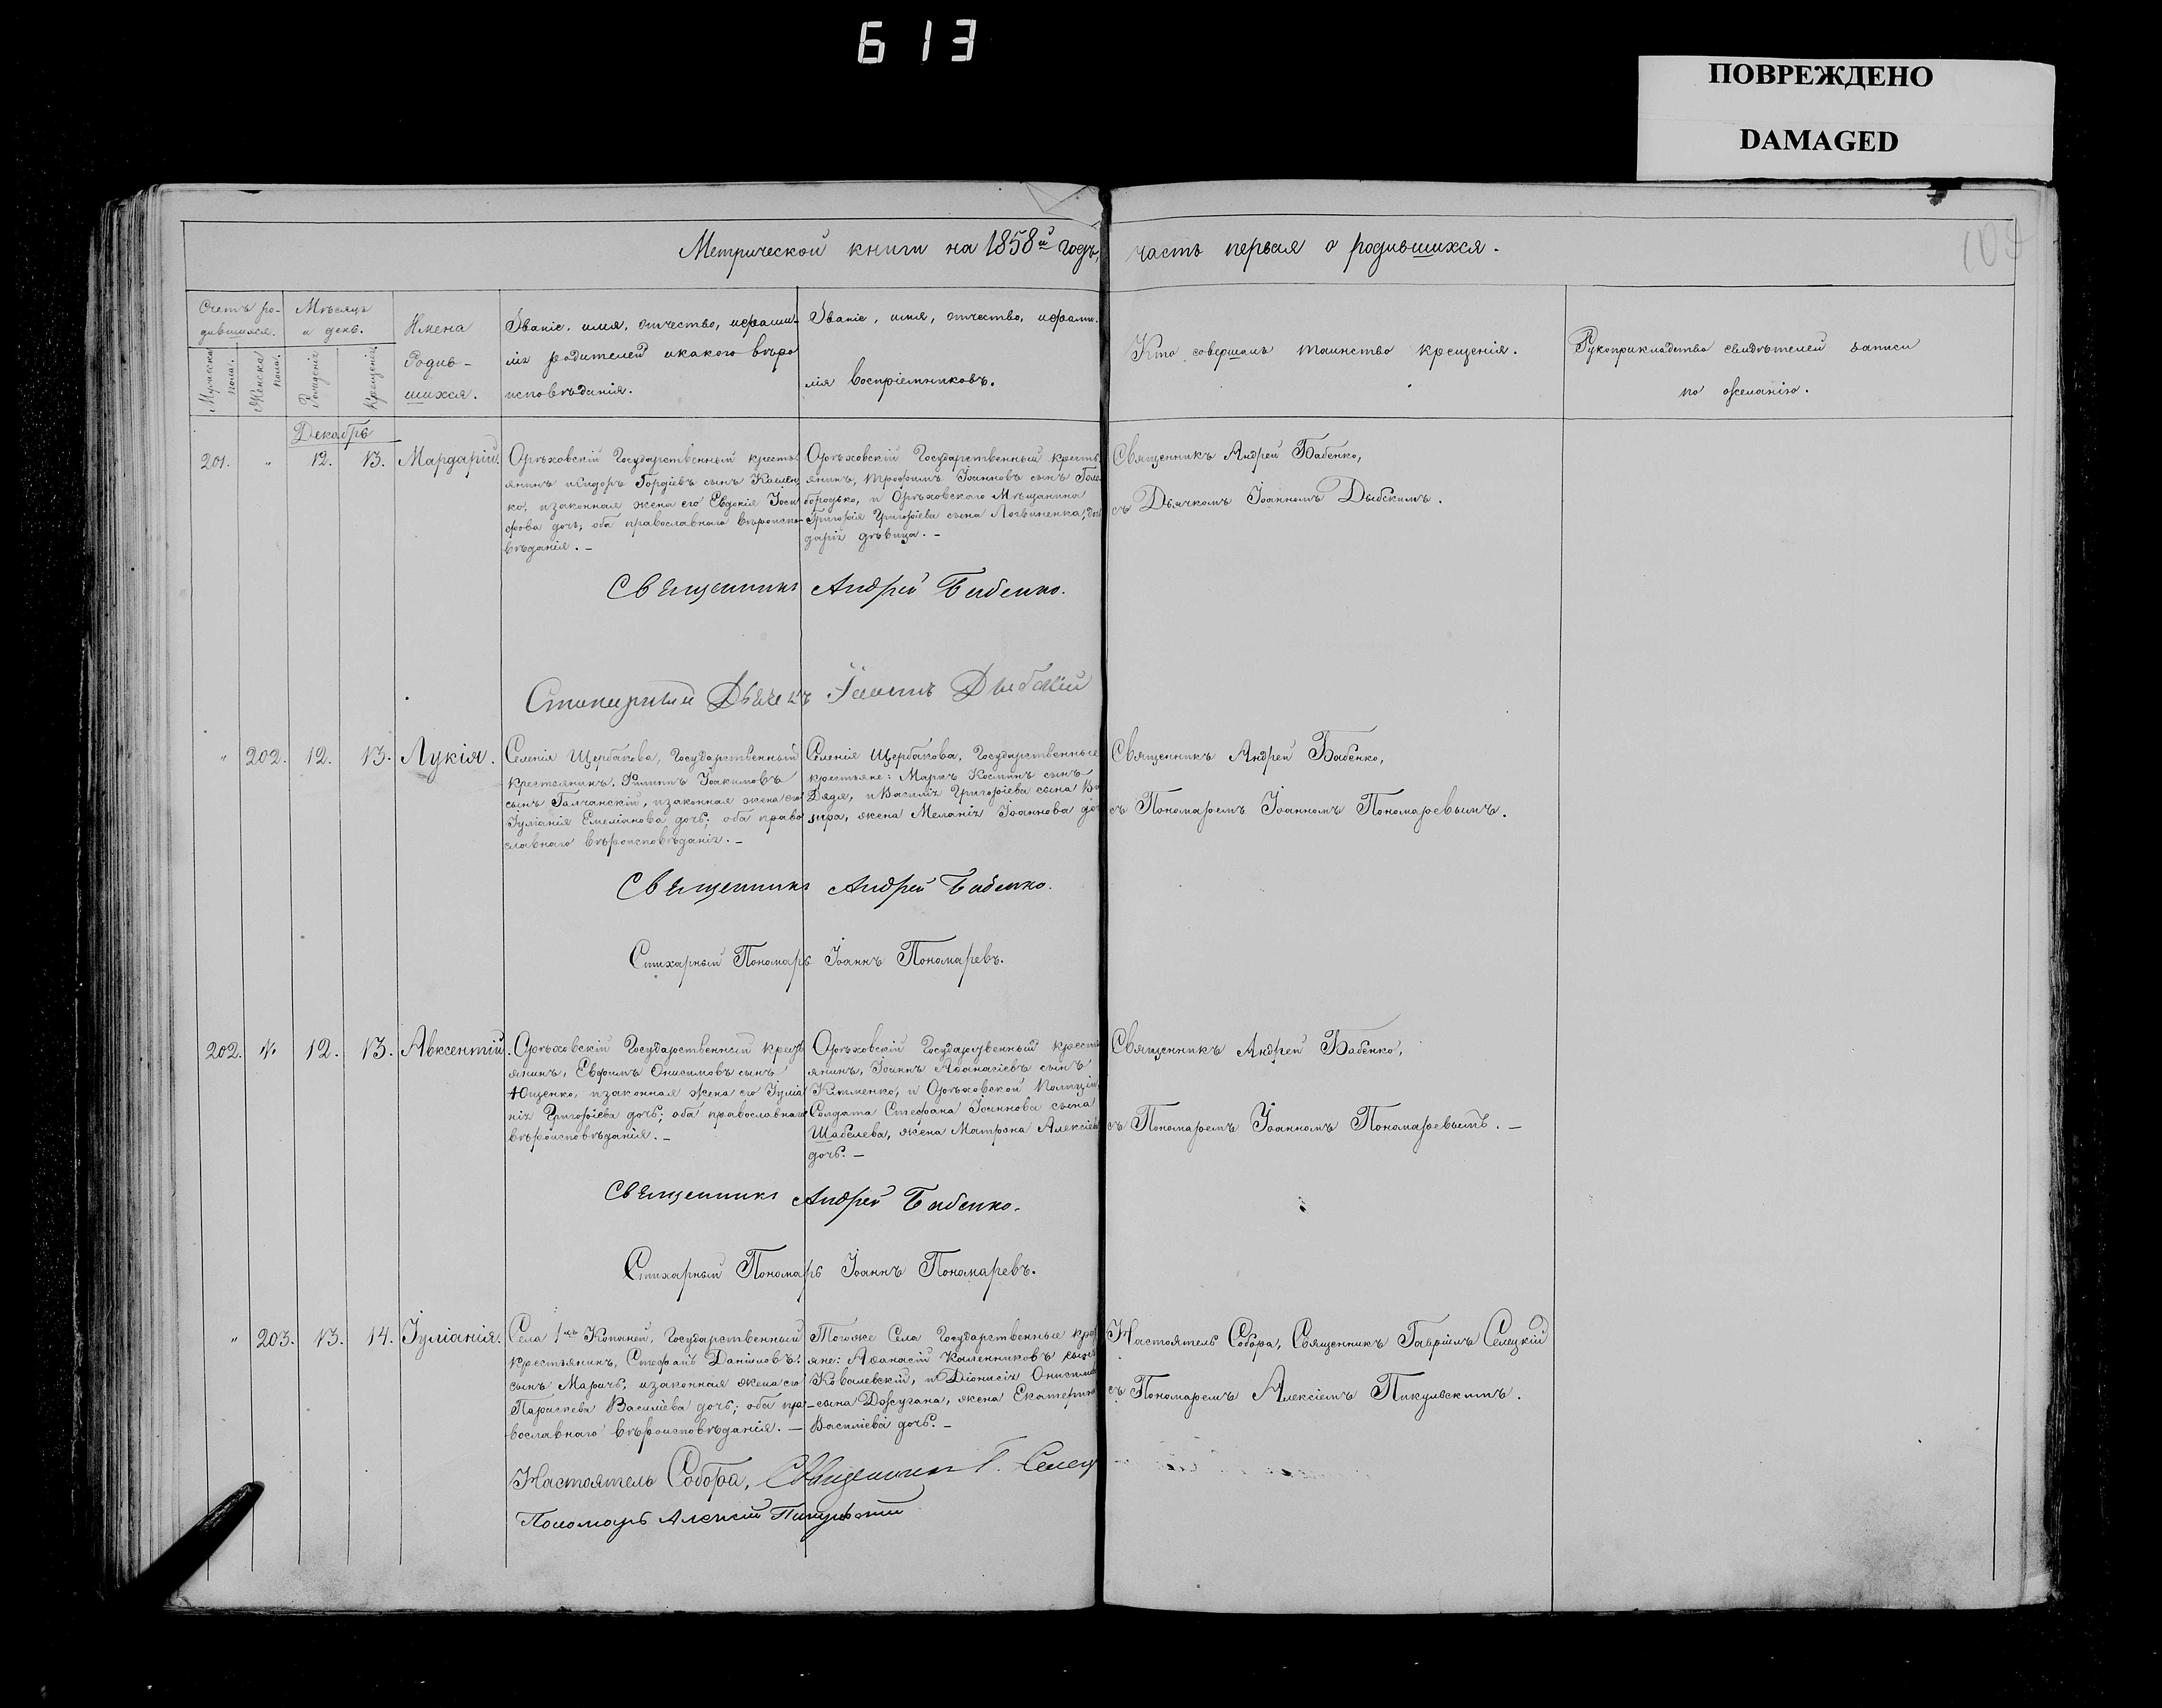 613
ПОВРЕЖДЕНО
DAMAGED
Метрической книги на 1858й годъ, часть первая о родившихся.
Счетъ ро-
дившихся.
Мужеска пола.
Женска пола.
Мѣсяцъ
и день.
Рожденія
Крещенія.
Имена
Родив-
шихся.
Званіе, имя, отчество, ифами-
лія родителей икакого вѣро
исповѣданія.
Званіе, имя, отчество, ифами-
лія Воспріемниковъ.
Кто совершалъ таинство крещенія.
Рукоприкладство свидѣтелей записи
по желанію.
Декабрь
201. " 12. 13. Мардарій.
Орѣховскій Государственный кресть
янинъ Исидоръ Гордіевъ сынъ
ко, изаконная жена его Евдокія Іоси
фова дочь; оба православнаго вѣроиспо-
вѣданія. –
Орѣховскій Государственный кресть
янинъ, Трофимъ Іоанновъ сынъ Голо
бородько, и Орѣховскаго Мѣщанина
Григорія Григоріева сына Логвиненка, дочь
дарія дѣвица. –
Священникъ Андрей Бабенко,
съ Дьячкомъ Іоанномъ Дыбскимъ.
Священникъ Андрей Бабенко.
Стихарный Дьячекъ Іоаннъ Дыбскій
" 202. 12. 13. Лукія.
Селенія Щербакова, Государственный
крестьянинъ, Филиппъ Іоакимовъ
сынъ Галчанскій, изаконная жена его
Іуліанія Емеліанова дочь; оба право
славнаго вѣроисповѣданія. –
Селенія Щербакова, Государственные
крестьяне: Маркъ Косминъ сынъ
Дядя, и Василія Григоріева сына
жена Меланія Іоаннова до
Священникъ Андрей Бабенко,
съ Пономаремъ Іоанномъ Пономаревымъ.
Священникъ Андрей Бабенко.
Стихарный Пономарь Іоаннъ Пономаревъ.
202. " 12. 13. Авксентій.
Орѣховскій Государственный кресть
янинъ, Евфимъ Онисимовъ сынъ
Ющенко, изаконная жена его Іуліа
нія Григоріева дочь; оба православнаго
вѣроисповѣданія. –
Орѣховскій Государственный кресть
янинъ, Іоаннъ Аѳанасіевъ сынъ
Клименко, и Орѣховской Полиціи
Солдата Стефана Іоаннова сына
Шабелева, жена Матрона Алексіева
дочь. –
Священникъ Андрей Бабенко,
съ Пономаремъ Іоанномъ Пономаревымъ. –
Священникъ Андрей Бабенко.
Стихарный Пономарь Іоаннъ Пономаревъ.
" 203. 13. 14. Іуліанія.
Села 1хъ Копаней, Государственный
крестьянинъ, Стефанъ Даніиловъ
сынъ Маричъ, изаконная жена его
Параскева Василіева дочь; оба пра-
вославнаго вѣроисповѣданія. –
Тогоже Села Государственные крес
яне: Аѳанасій Каленниковъ сынъ
Ковалевскій, и Діонисія Онисимо
сына Джугана, жена Екатерина
Василіева дочь. –
Настоятель Собора, Священникъ Гавріилъ Селецкій
съ Пономаремъ Алексіемъ Пикульскимъ.
Настоятель Собора, Священникъ Г. Селец
Пономарь Алексій Пикульскій